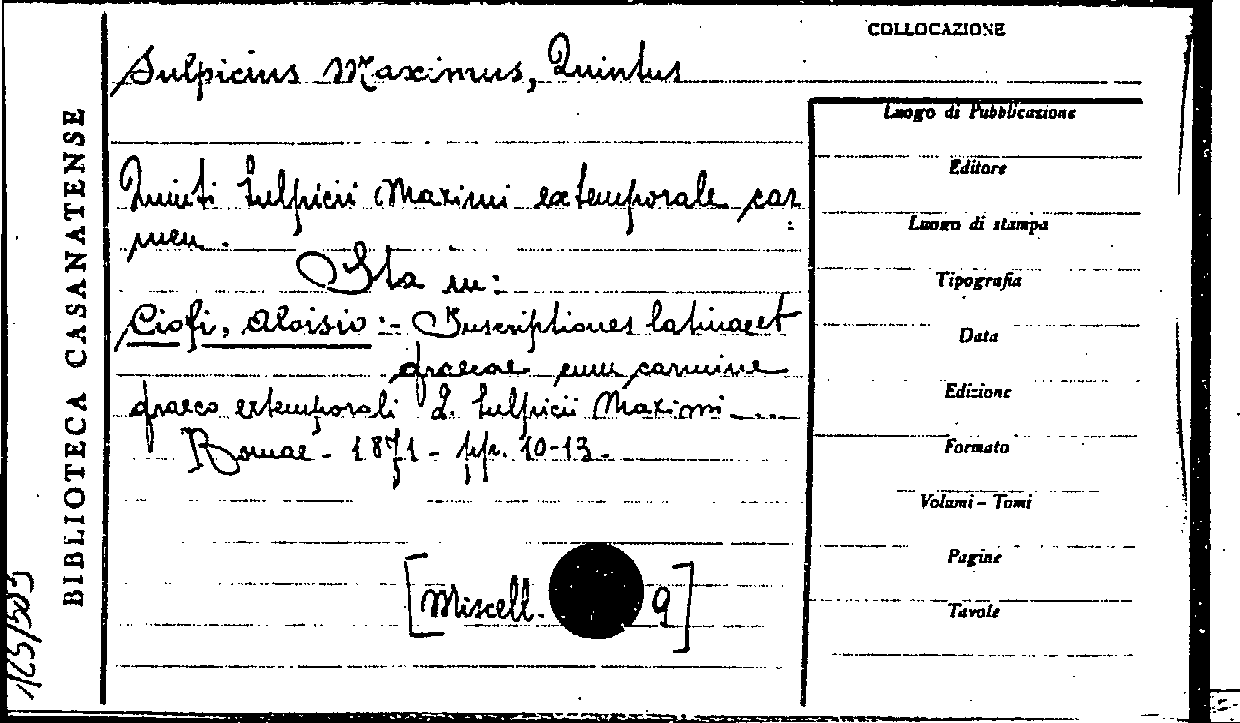 COLLOCAZIONE
Sulpicius Maximus, Quintus
Luogo di Pubblicazione
Editore
Quinti Sulpicii Maximi extemporale car
men.
Luogo di stampa
Sta in:
Tipografia
Ciofi, Aloisio:- Inscriptiones latinae et
Data
graecae cum carmine
graeco extemporali Q. Sulpicii Maximi ....
Edizione
Romae - 1871 - pp. 10-13.
Formato
Volumi - Tomi
Pagine
[Miscell. 9]
Tavole
BIBLIOTECA CASANATENSE